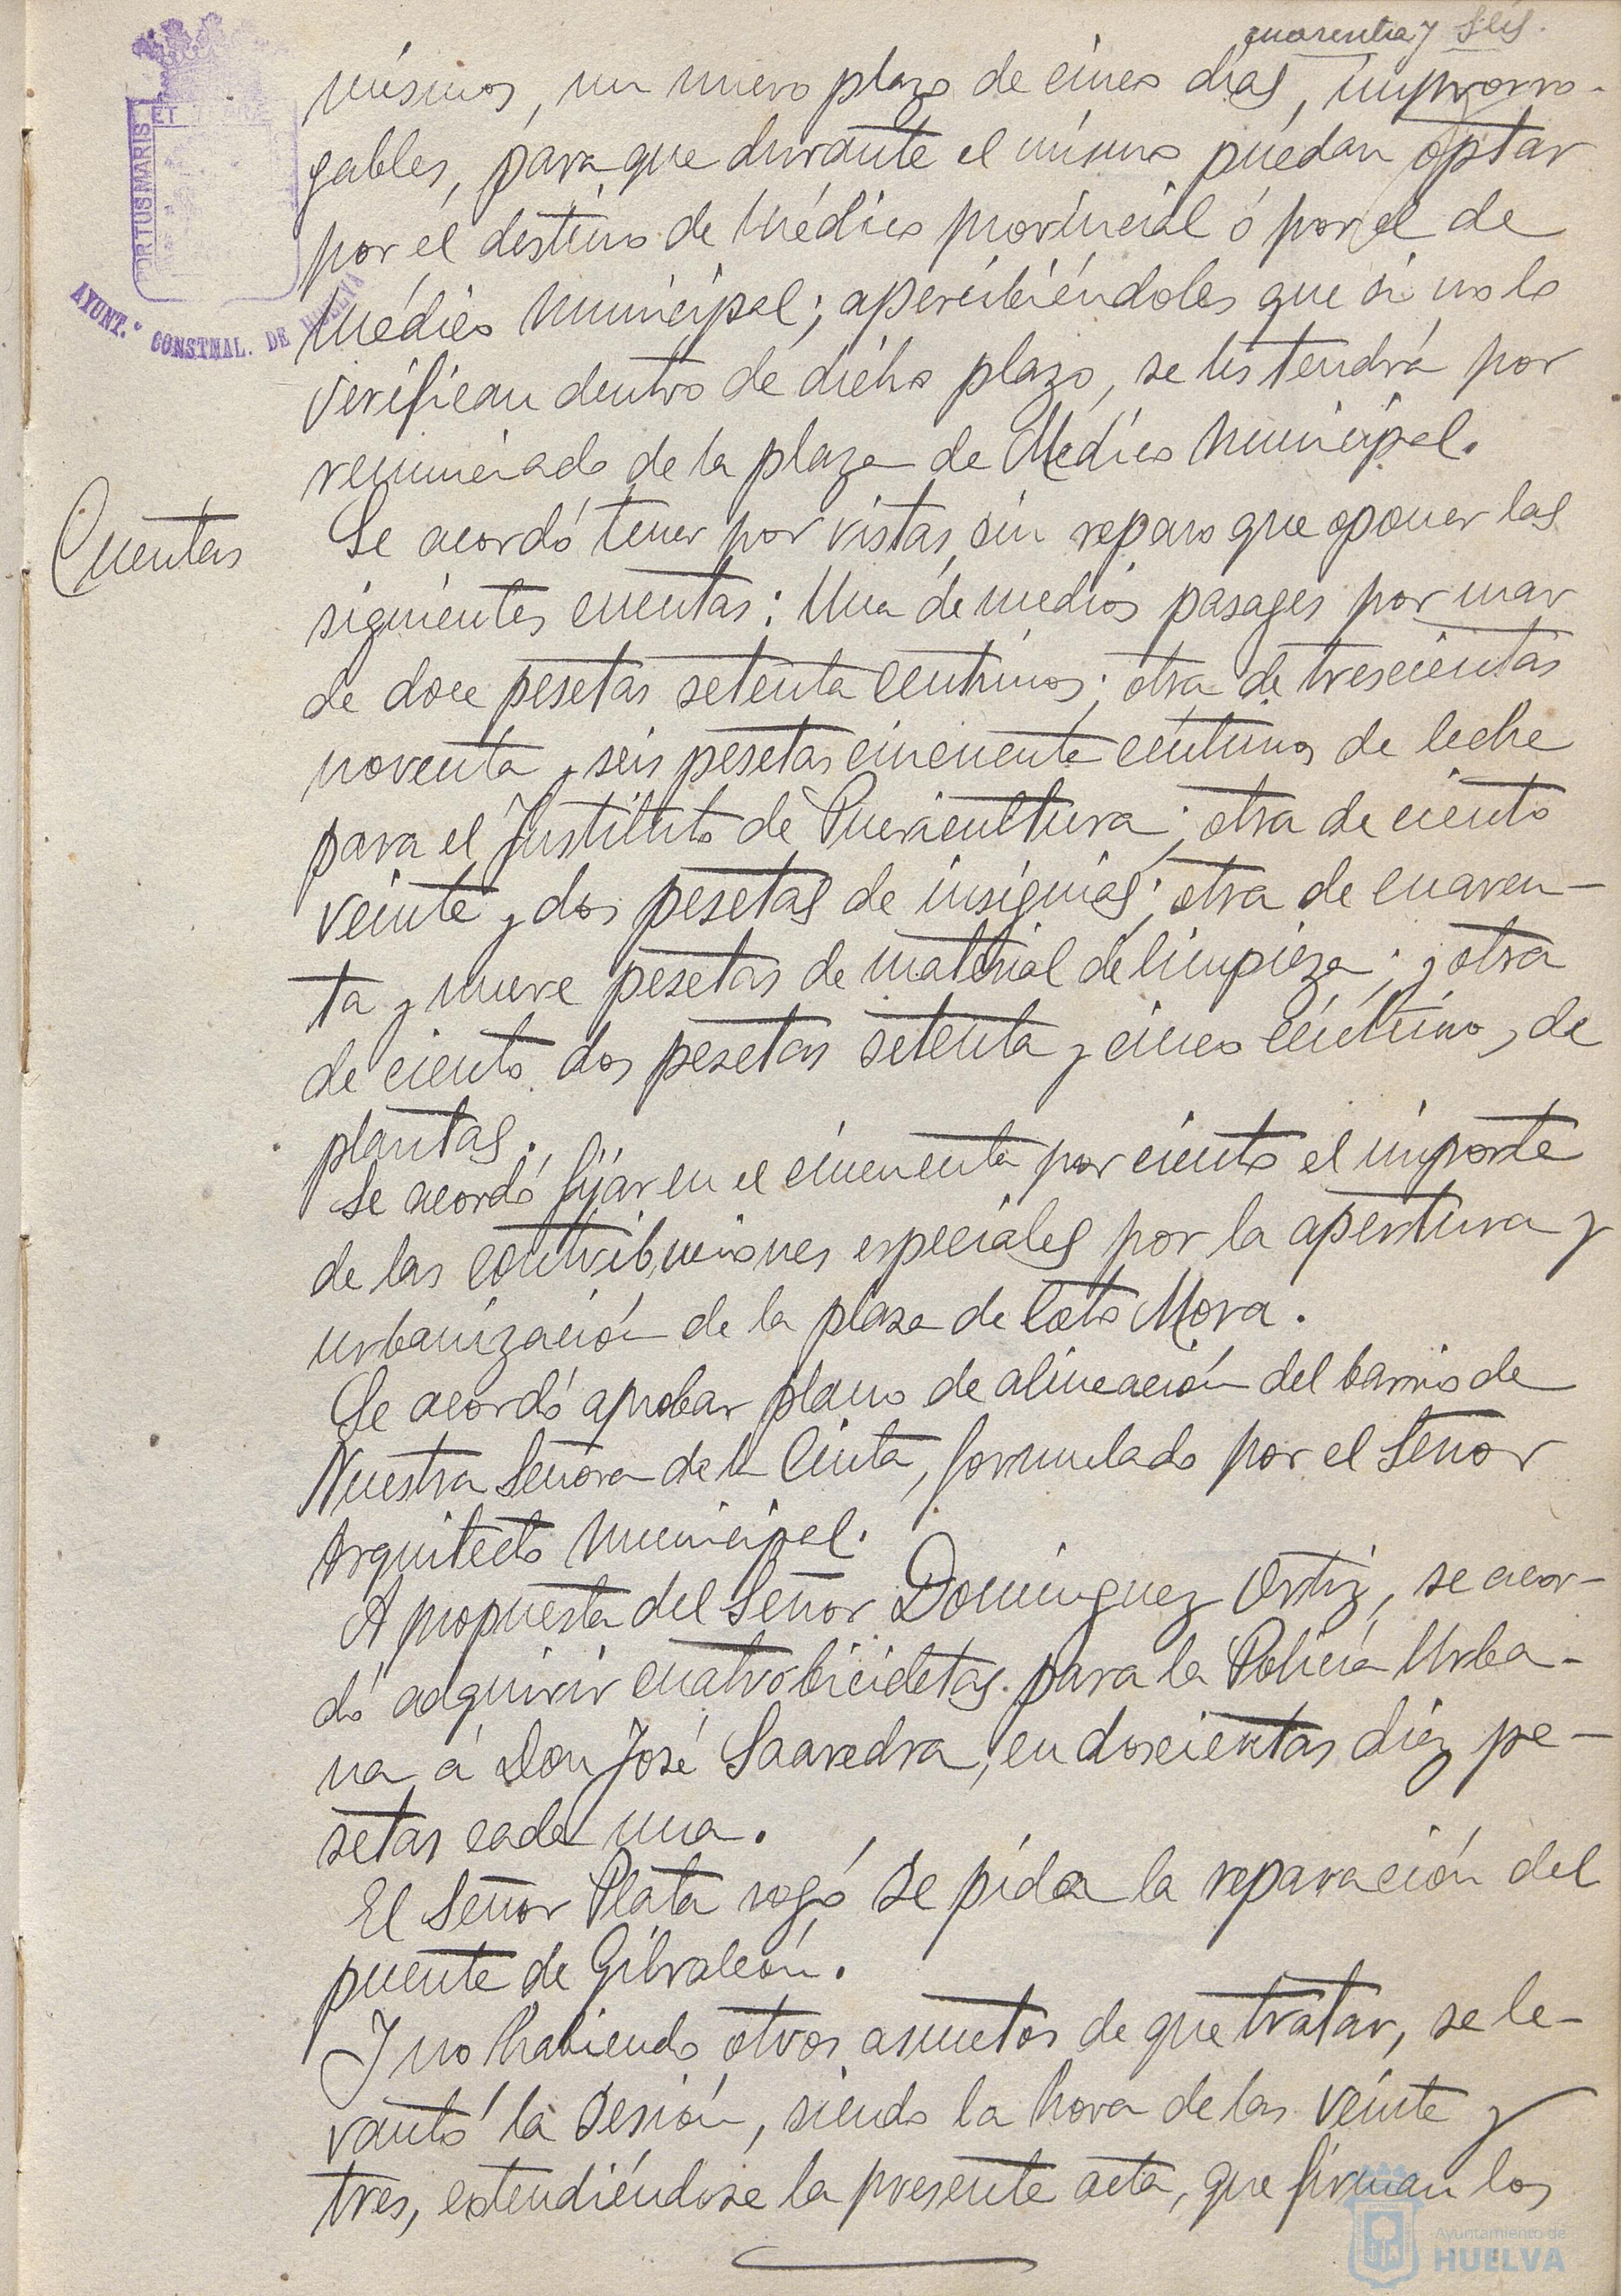 cuarenta y seis.
mismos, un nuevo plazo de cinco días, improrro-
gables, para que durante el mismo puedan optar
por el destino de Médico provincial ó por el de
Médico Municipal; apercibiéndoles que si no lo
verifican dentro de dicho plazo, se les tendrá por
renunciado de la plaza de Médico Municipal.
Cuentas
Se acordó tener por vistas, sin reparo que oponer las
siguientes cuentas: Una de medios pasages por mar
de doce pesetas setenta centimos; otra de trescientas
noventa y seis pesetas cincuenta céntimos de leche
para el Instituto de Puericultura; otra de ciento
veinte y dos pesetas de insignias; otra de cuaren-
ta y nueve pesetas de material de limpieza; y otra
de ciento dos pesetas setenta y cinco céntimos, de
plantas.
Se acordó fijar en el cincuenta por ciento el importe
de las contribuciones especiales por la apertura y
urbanización de la plaza de Coto Mora.
Se acordó aprobar plano de alineación del barrio de
Nuestra Señora de la Cinta, formulado por el Señor
Arquitecto Municipal.
A propuesta del Señor Dominguez Ortiz, se acor-
dó adquirir cuatro bicicletas para la Policía Urba-
na á Don José Saavedra, en doscientas diez pe-
setas cada una.
El Señor Plata rogó se pida la reparación del
puente de Gibraleón.
Y no habiendo otros asuntos de que tratar, se le-
vantó la sesión, siendo la hora de las veinte y
tres, extendiéndose la presente acta, que firman los
PORTUS MARIS
ET TERRAE
AYUNT.º CONSTNAL. DE HUELVA
Ayuntamiento de
HUELVA